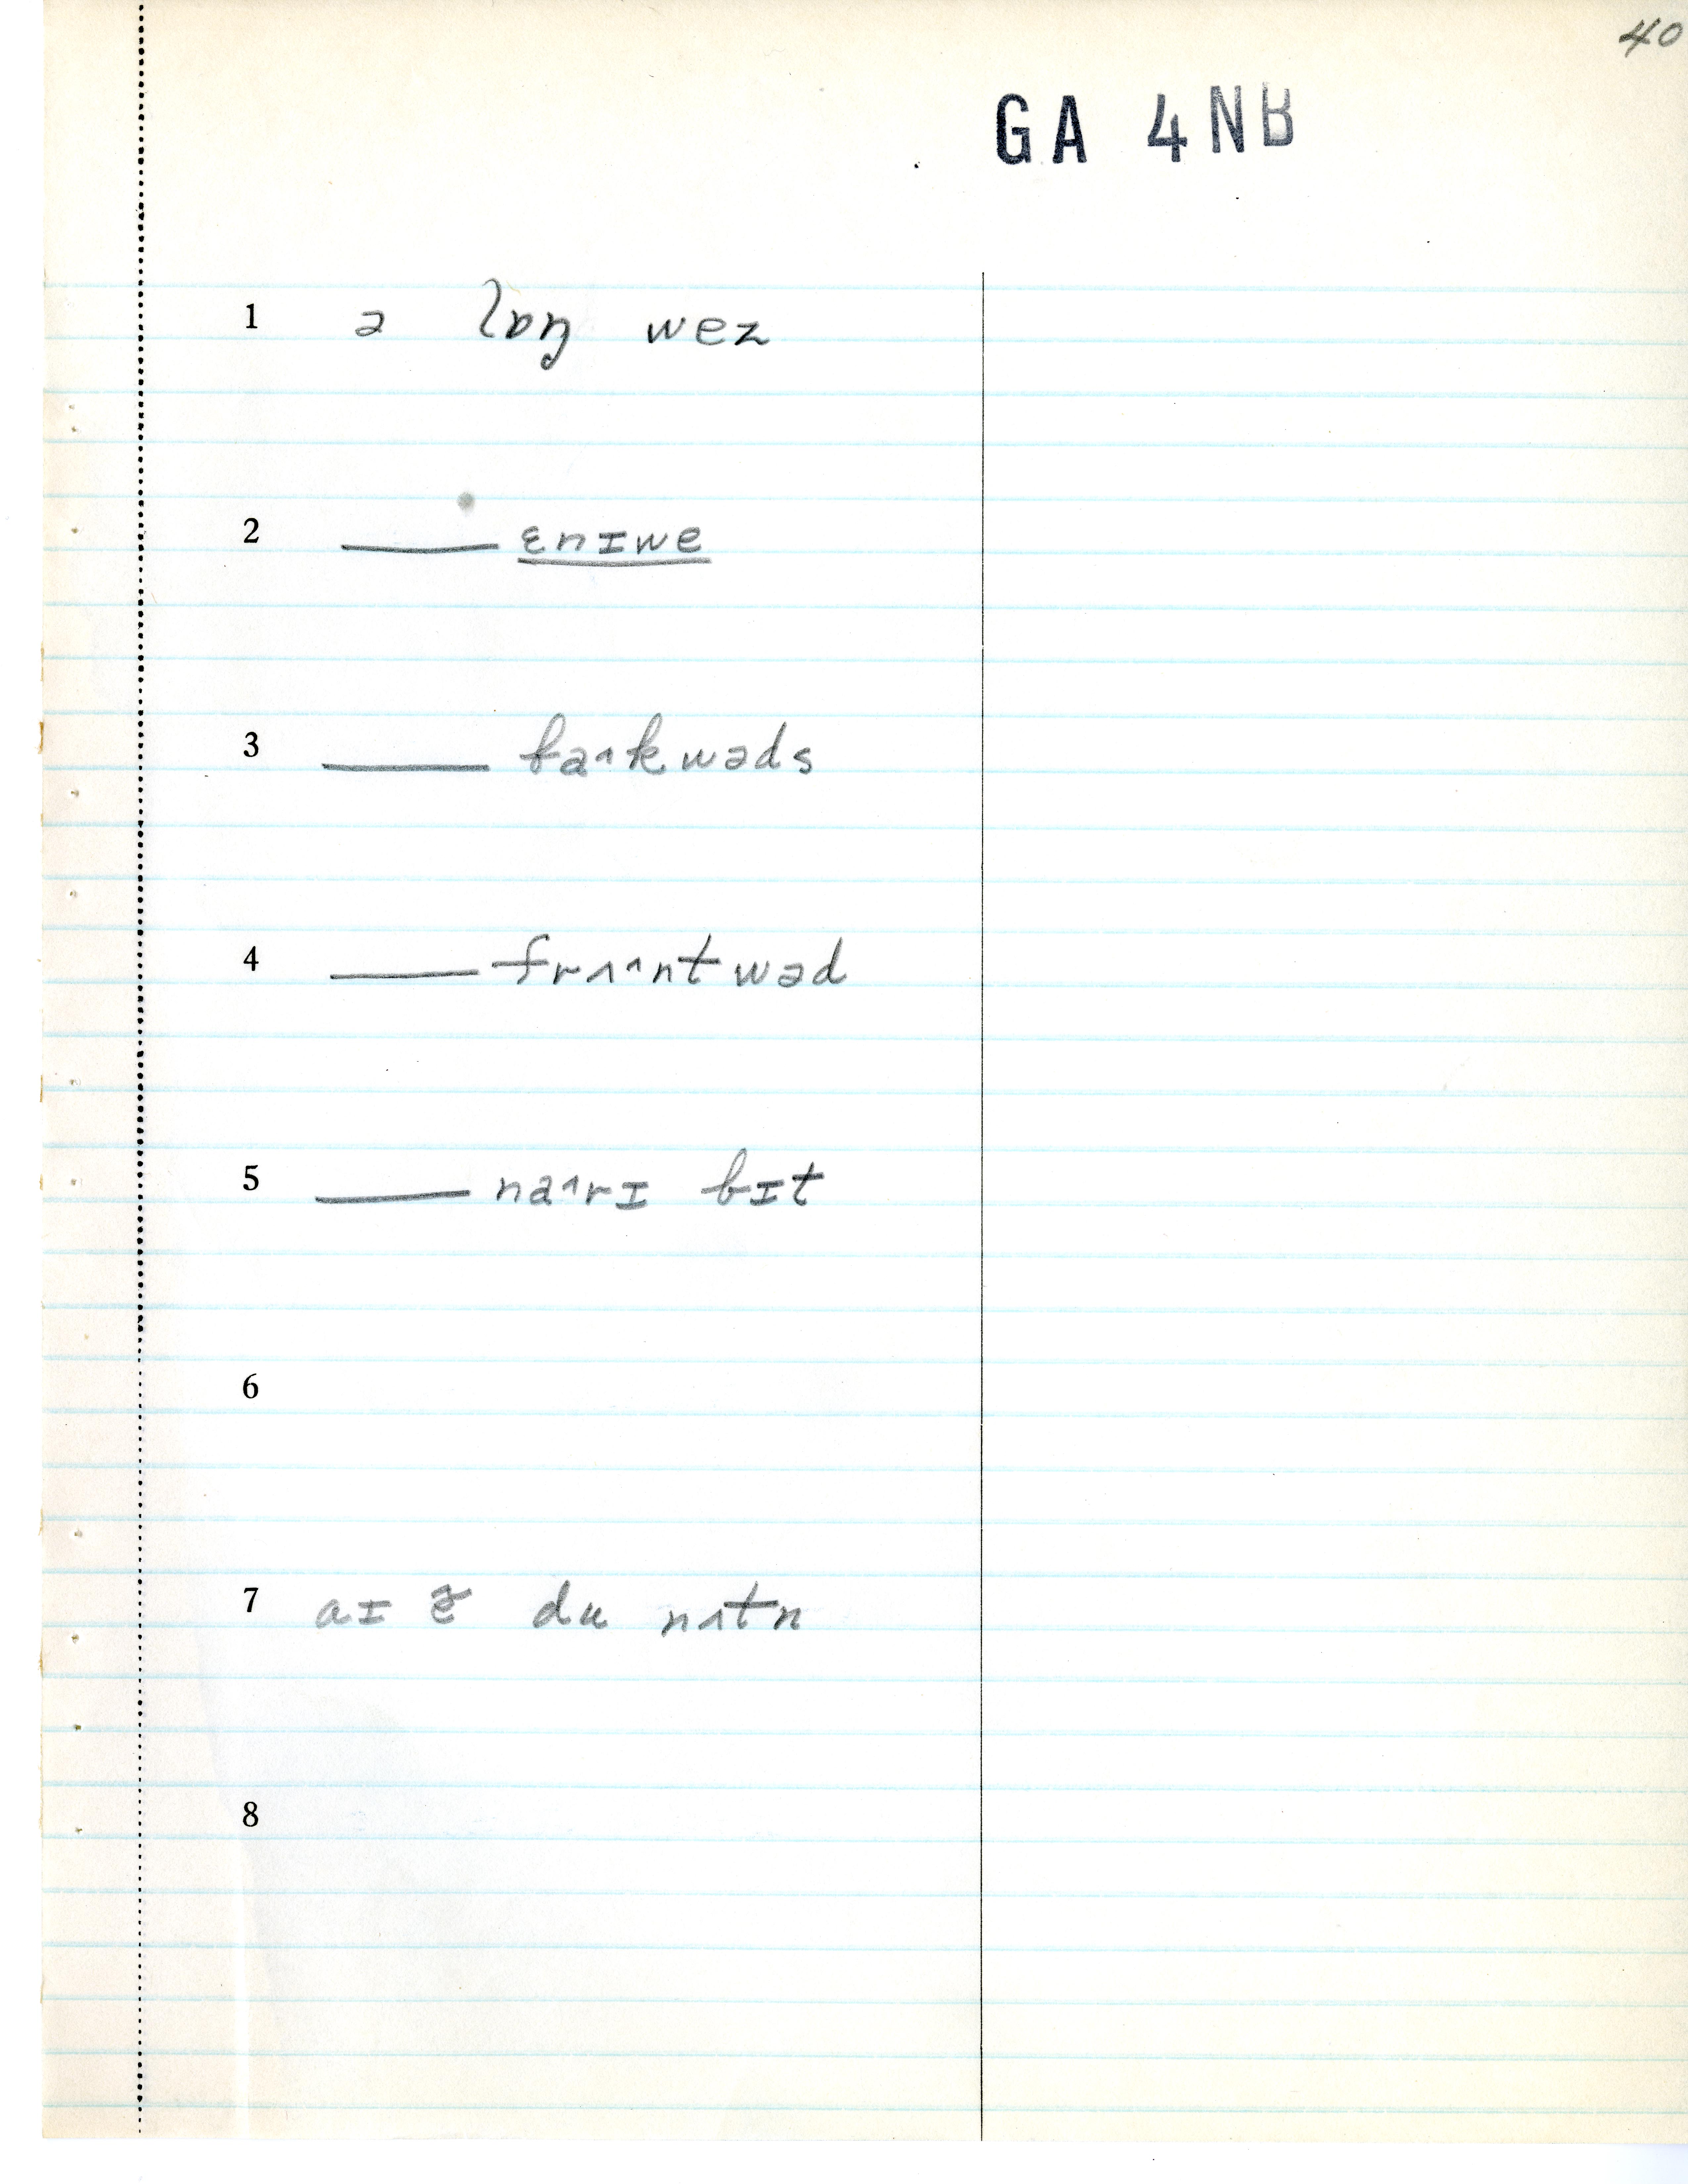 40
GA 4NB
1 ə lɒŋ wez
2 ____ ɛnɪwe
3 ____ ba^kwəds
4 ____ frʌ^ntwəd
5 ____ na^rɪ bɪt
6
7 aɪ du nʌtn
8